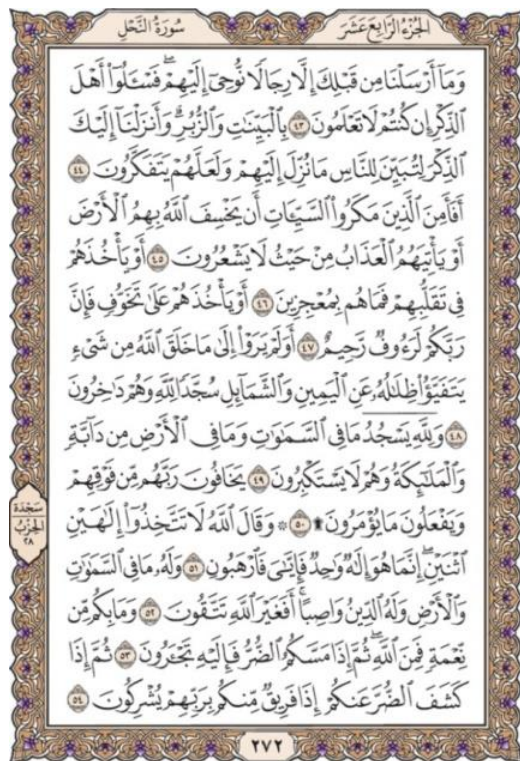 الجُزْءُ الرَّابِعَ عَشَرَ
سُورَةُ النَّحْلِ
وَمَآ أَرْسَلْنَا مِن قَبْلِكَ إِلَّا رِجَالًا نُّوحِىٓ إِلَيْهِمْ ۖ فَسْـَٔلُوٓا۟ أَهْلَ
ٱلذِّكْرِ إِن كُنتُمْ لَا تَعْلَمُونَ ٤٣ بِٱلْبَيِّنَـٰتِ وَٱلزُّبُرِ ۗ وَأَنزَلْنَآ إِلَيْكَ
ٱلذِّكْرَ لِتُبَيِّنَ لِلنَّاسِ مَا نُزِّلَ إِلَيْهِمْ وَلَعَلَّهُمْ يَتَفَكَّرُونَ ٤٤
أَفَأَمِنَ ٱلَّذِينَ مَكَرُوا۟ ٱلسَّيِّـَٔاتِ أَن يَخْسِفَ ٱللَّهُ بِهِمُ ٱلْأَرْضَ
أَوْ يَأْتِيَهُمُ ٱلْعَذَابُ مِنْ حَيْثُ لَا يَشْعُرُونَ ٤٥ أَوْ يَأْخُذَهُمْ
فِى تَقَلُّبِهِمْ فَمَا هُم بِمُعْجِزِينَ ٤٦ أَوْ يَأْخُذَهُمْ عَلَىٰ تَخَوُّفٍ فَإِنَّ
رَبَّكُمْ لَرَءُوفٌ رَّحِيمٌ ٤٧ أَوَلَمْ يَرَوْا۟ إِلَىٰ مَا خَلَقَ ٱللَّهُ مِن شَىْءٍ
يَتَفَيَّؤُا۟ ظِلَـٰلُهُۥ عَنِ ٱلْيَمِينِ وَٱلشَّمَآئِلِ سُجَّدًا لِّلَّهِ وَهُمْ دَٰخِرُونَ
٤٨ وَلِلَّهِ يَسْجُدُ مَا فِى ٱلسَّمَـٰوَٰتِ وَمَا فِى ٱلْأَرْضِ مِن دَآبَّةٍ
وَٱلْمَلَـٰٓئِكَةُ وَهُمْ لَا يَسْتَكْبِرُونَ ٤٩ يَخَافُونَ رَبَّهُم مِّن فَوْقِهِمْ
وَيَفْعَلُونَ مَا يُؤْمَرُونَ ۩ ٥٠ ۞ وَقَالَ ٱللَّهُ لَا تَتَّخِذُوٓا۟ إِلَـٰهَيْنِ
ٱثْنَيْنِ ۖ إِنَّمَا هُوَ إِلَـٰهٌ وَٰحِدٌ ۖ فَإِيَّـٰىَ فَٱرْهَبُونِ ٥١ وَلَهُۥ مَا فِى ٱلسَّمَـٰوَٰتِ
وَٱلْأَرْضِ وَلَهُ ٱلدِّينُ وَاصِبًا ۚ أَفَغَيْرَ ٱللَّهِ تَتَّقُونَ ٥٢ وَمَا بِكُم مِّن
نِّعْمَةٍ فَمِنَ ٱللَّهِ ۖ ثُمَّ إِذَا مَسَّكُمُ ٱلضُّرُّ فَإِلَيْهِ تَجْـَٔرُونَ ٥٣ ثُمَّ إِذَا
كَشَفَ ٱلضُّرَّ عَنكُمْ إِذَا فَرِيقٌ مِّنكُم بِرَبِّهِمْ يُشْرِكُونَ ٥٤
سَجْدَة
الحِزْبُ
٢٨
٢٧٢